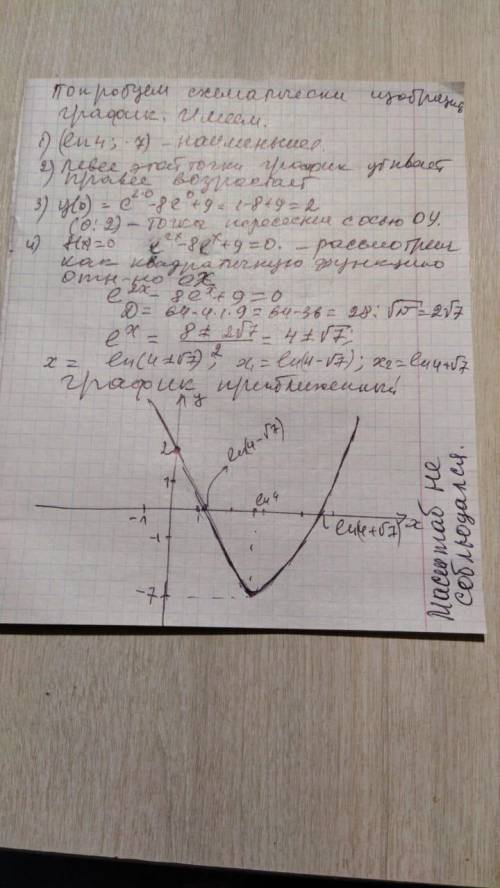 Попробуем схематически изобразить
график. Имеем.
1) (ln4; -7) - наименьшее.
2) левее этой точки график убывает
правее возрастает
3) y(0) = e^{2·0} - 8e^0 + 9 = 1-8+9 = 2
(0; 2) - точка пересечения с осью OY.
4) f(x)=0 e^{2x} - 8e^x + 9 = 0. - рассмотрим
как квадратичную функцию
отн-но e^x
e^{2x} - 8e^x + 9 = 0
D = 64 - 4·1·9 = 64-36 = 28; √D = 2√7
e^x = (8 ± 2√7)/2 = 4 ± √7;
x = ln(4±√7); x₁ = ln(4-√7); x₂ = ln4+√7
График приближенный
y
2
ln(4-√7)
1
ln4
-1
1
ln(4+√7)
x
-1
-7
Масштаб не
соблюдался.